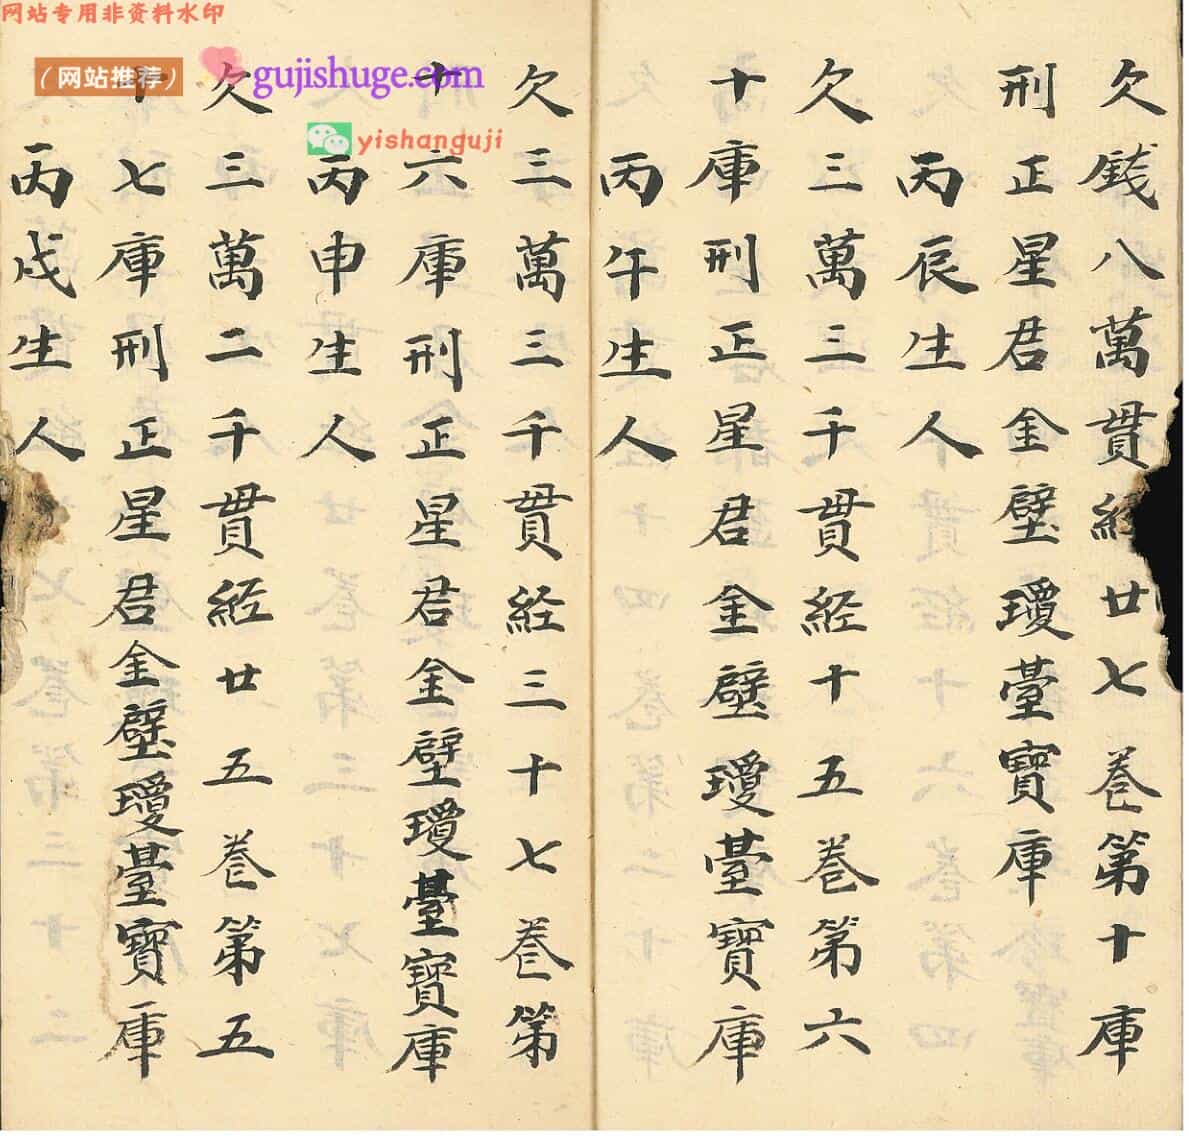 网站专用非资料水印
（网站推荐）
gujishuge.com
yishanguji
欠錢八萬貫經廿七卷第十庫
刑正星君金壁瓊臺寶庫
丙辰生人
欠三萬三千貫経十五卷第六
十庫刑正星君金壁瓊臺寶庫
丙午生人
欠三萬三千貫経三十七卷第
十六庫刑正星君金壁瓊臺寶庫
丙申生人
欠三萬二千貫経廿五卷第五
十七庫刑正星君金壁瓊臺寶庫
丙戌生人